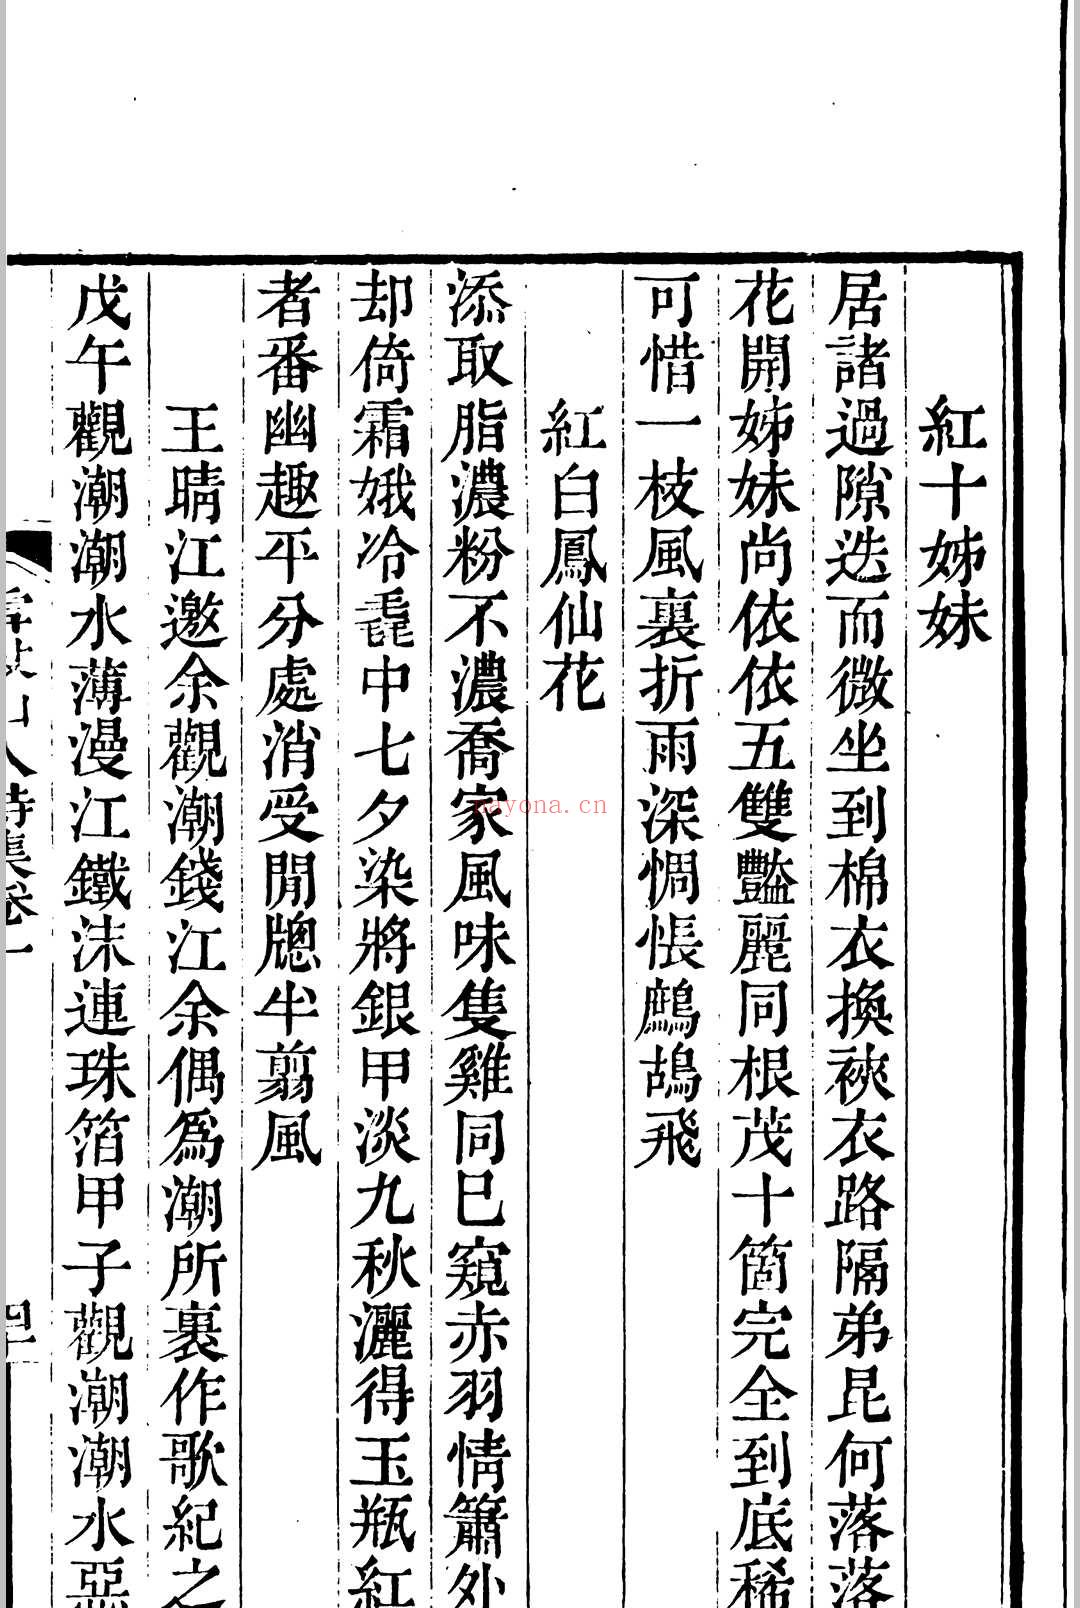 紅十姊妹
居諸過隙迭而微坐到棉衣換裌衣路隔弟昆何落落
花開姊妹尚依依五雙豔麗同根茂十箇完全到底稀
可惜一枝風裏折雨深惆悵鷓鴣飛
紅白鳳仙花
添取脂濃粉不濃喬家風味隻雞同巳窺赤羽情簫外
却倚霜娥冷毳中七夕染將銀甲淡九秋灑得玉瓶紅
者番幽趣平分處消受閒牕半剪風
王晴江邀余觀潮錢江余偶爲潮所裹作歌紀之
戊午觀潮潮水薄漫江鐵沫連珠箔甲子觀潮潮水惡
人詩集卷一
四
nayona.cn